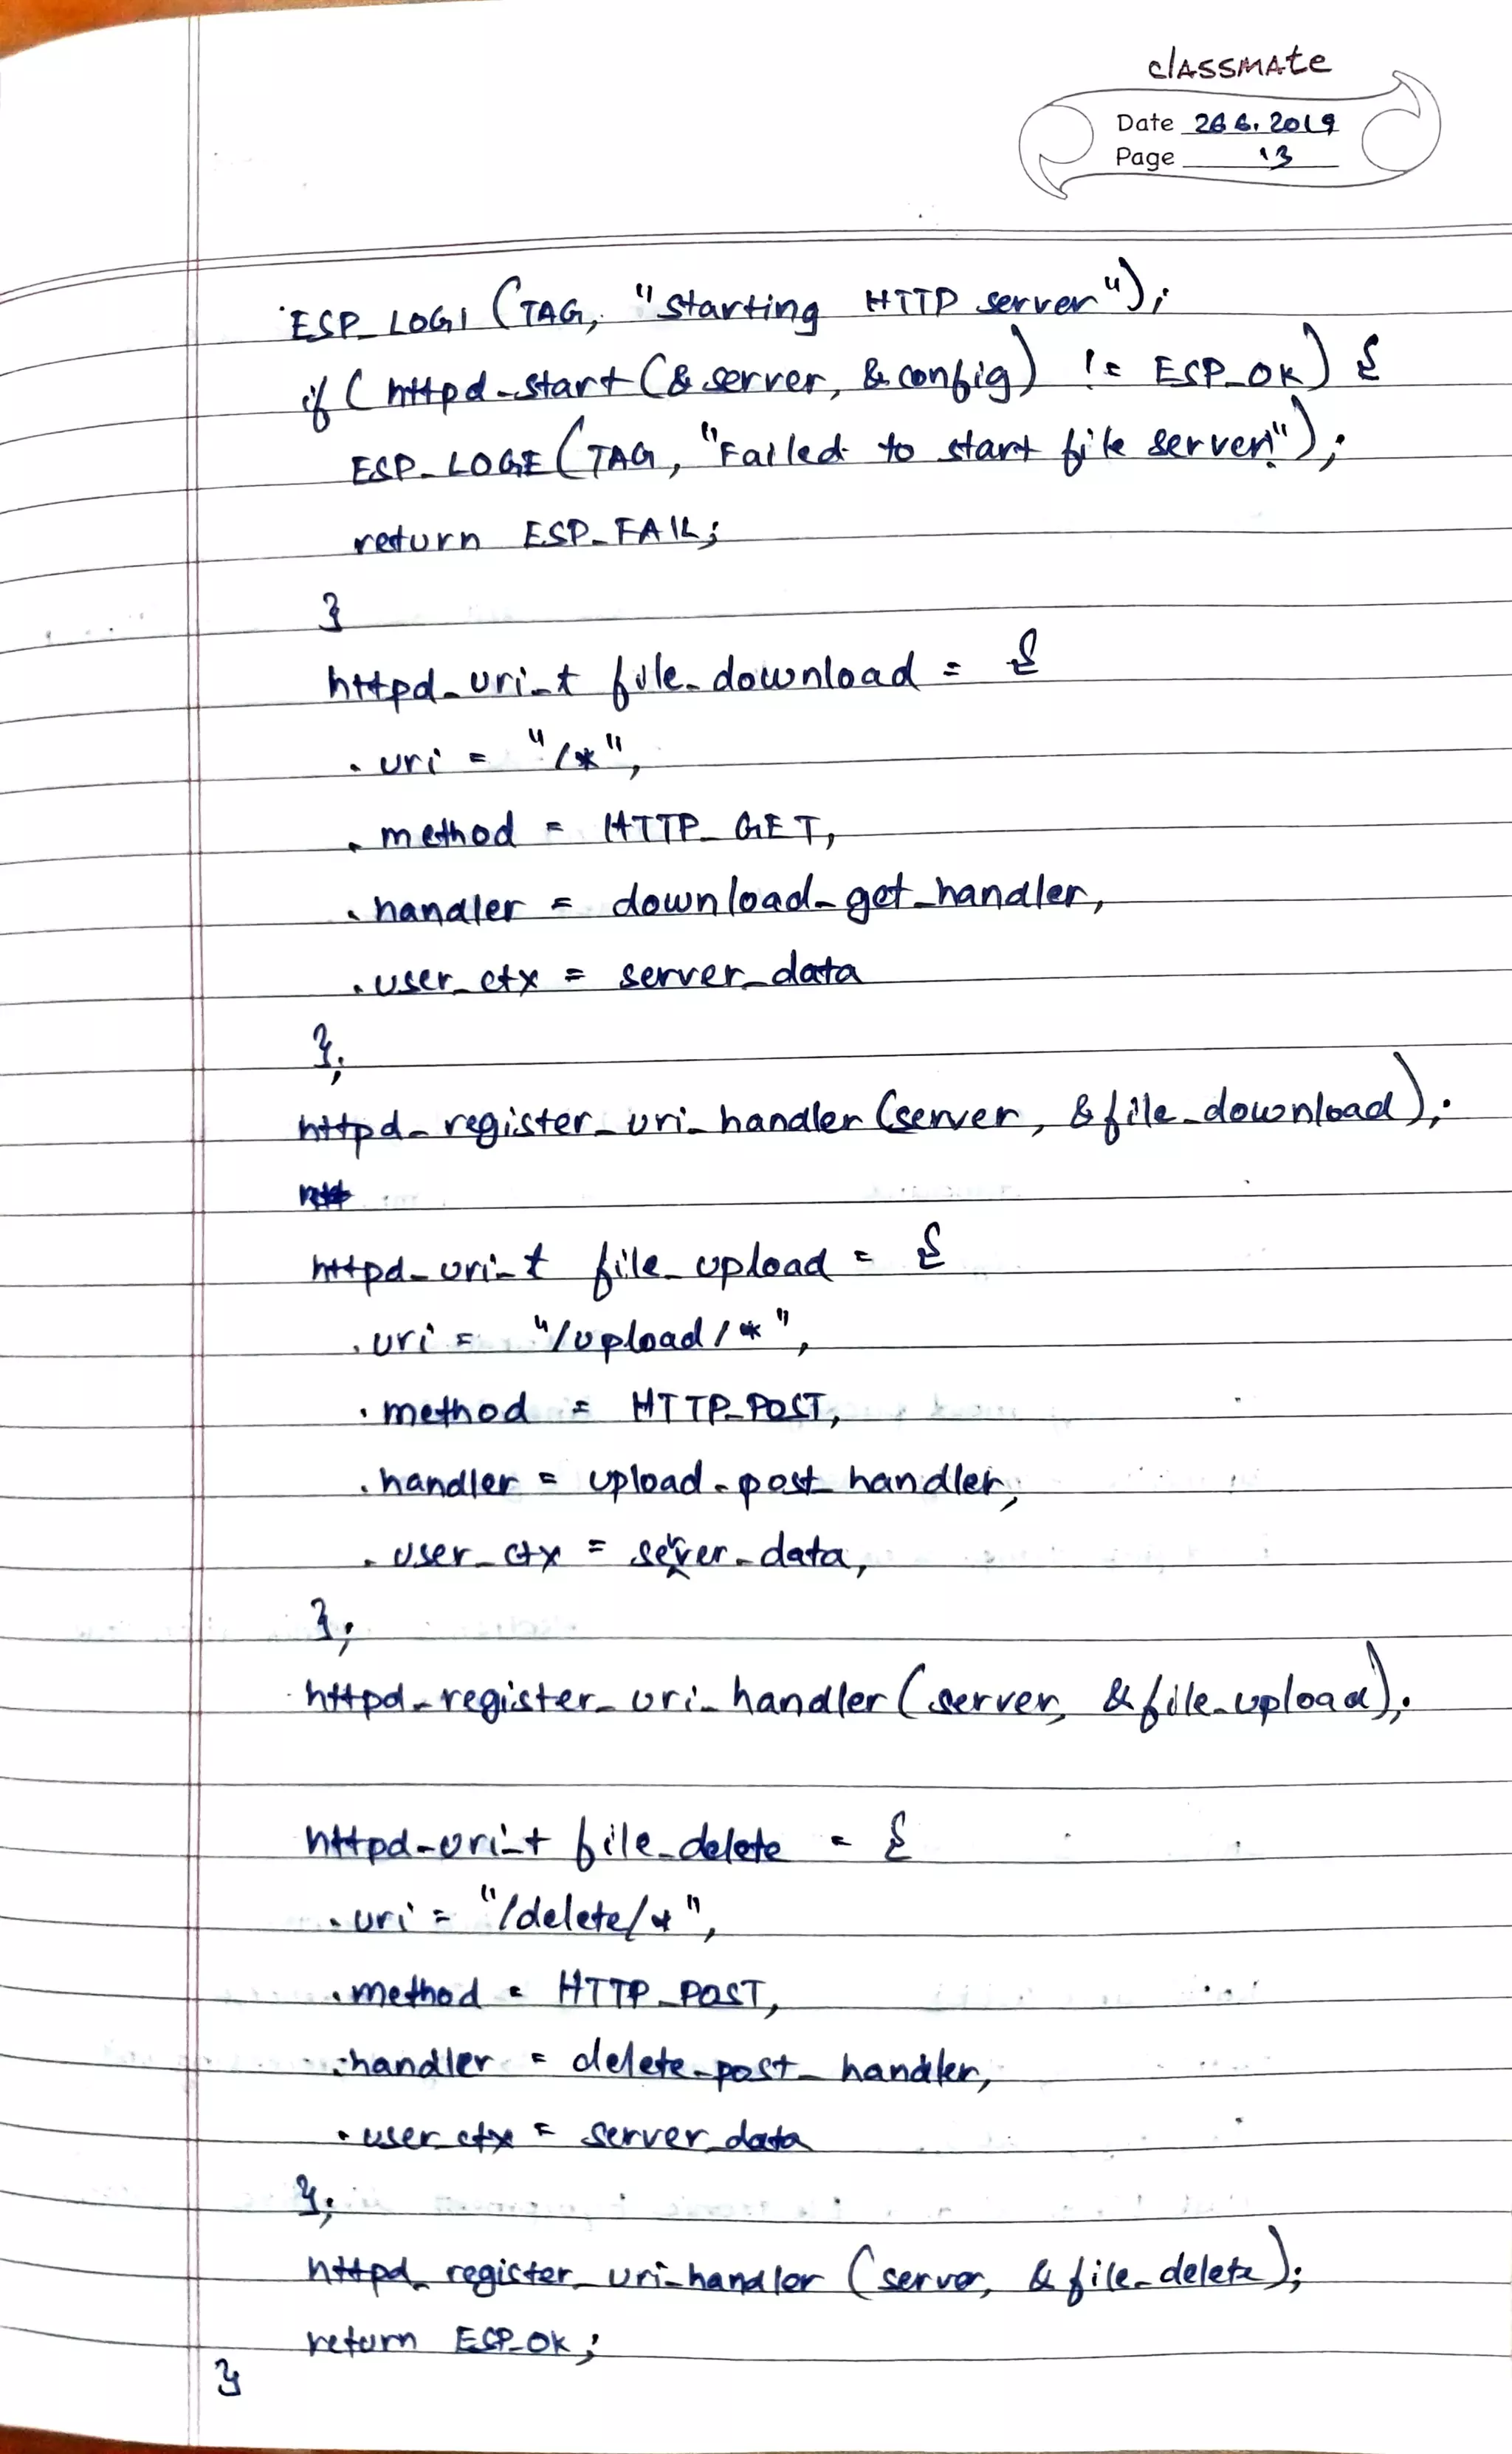 classmate
Date 26.6.2019
Page 13
ESP_LOGI (TAG, "Starting HTTP server");
if (httpd_start(&server, &config) != ESP_OK) {
ESP_LOGE (TAG, "Failed to start file server!");
return ESP_FAIL;
}
httpd_uri_t file_download = {
.uri = "/*",
.method = HTTP_GET,
.handler = download_get_handler,
.user_ctx = server_data
};
httpd_register_uri_handler (server, &file_download);
httpd_uri_t file_upload = {
.uri = "/upload/*",
.method = HTTP_POST,
.handler = upload_post_handler,
.user_ctx = server_data,
};
httpd_register_uri_handler (server, &file_upload);
httpd_uri_t file_delete = {
.uri = "/delete/*",
.method = HTTP_POST,
.handler = delete_post_handler,
.user_ctx = server_data
};
httpd_register_uri_handler (server, &file_delete);
return ESP_OK;
}